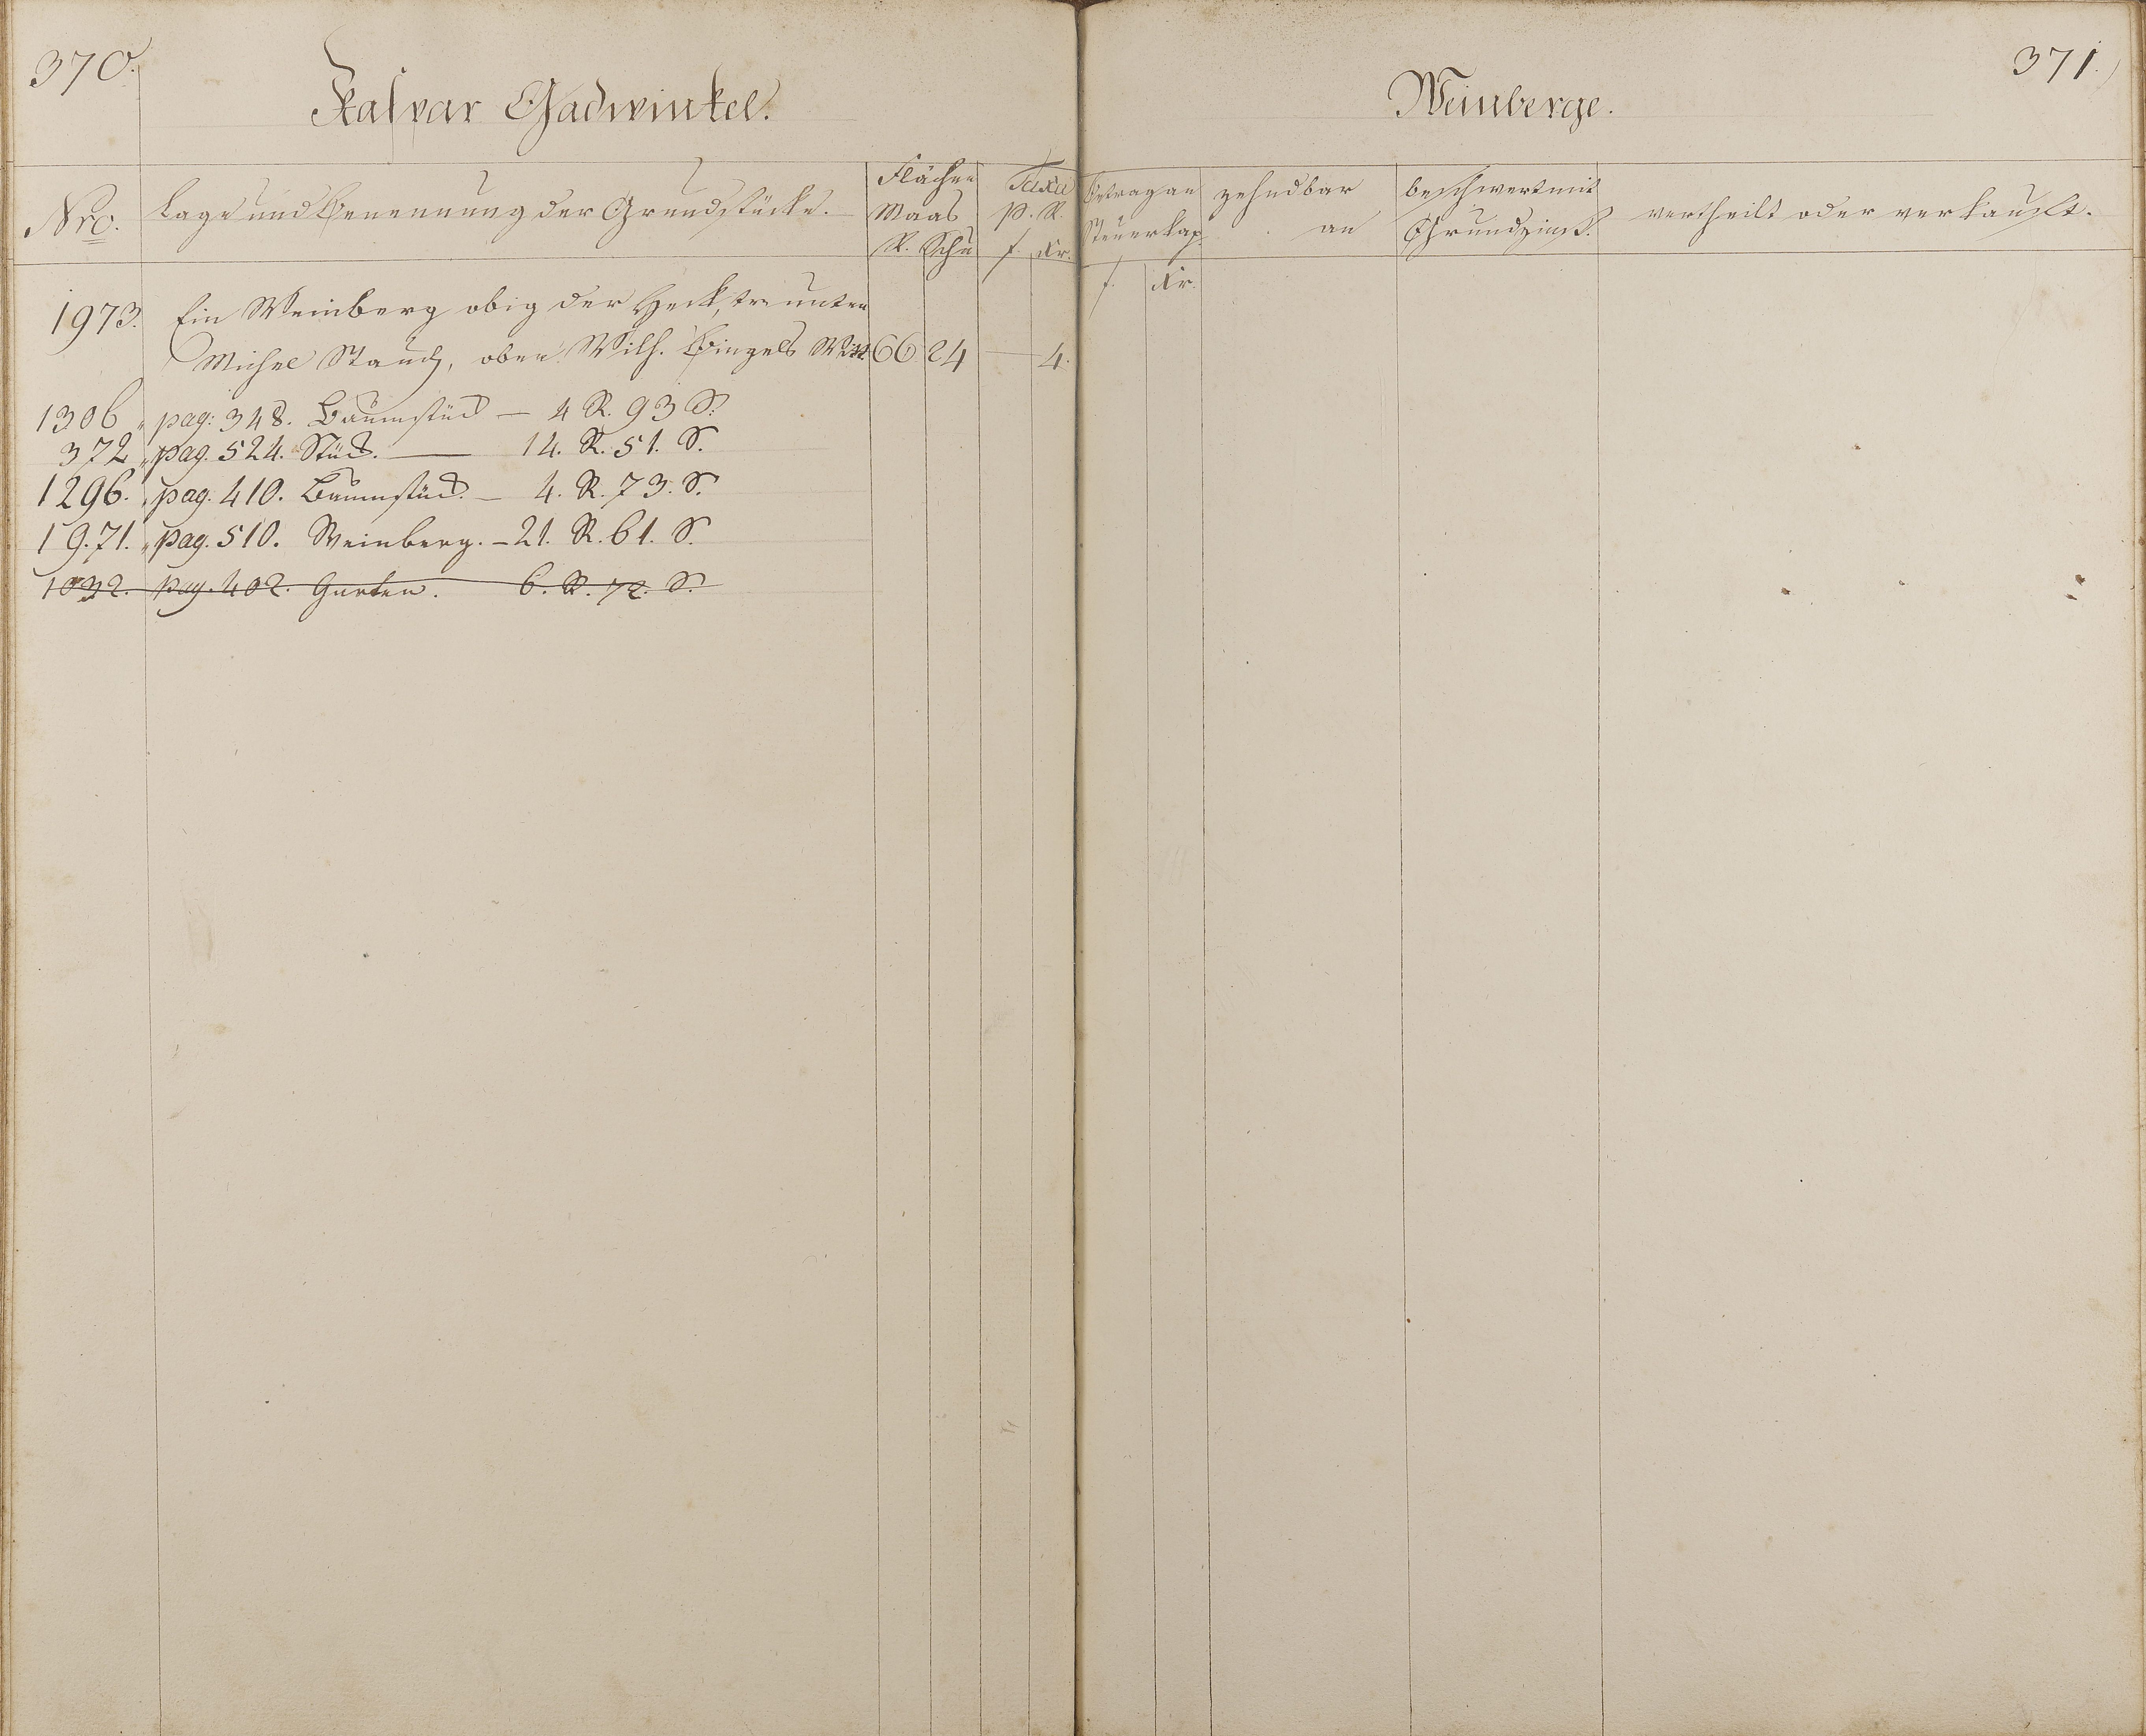 370.
Kaspar Gadwinkel.
Nro.
Lage und Benennung der Grundstücke.
Flächen
Maas
R. Schu
Taxa
p. R.
f. Kr.
1973. Ein Weinberg obig der Heck, unten
Michel Stauch, oben Wilh. Bingels Witt. 66 24 — 4.
1306 " pag: 348. Baumstück — 4 R. 93 S.
372 " pag. 524. Stück. — 14. R. 51. S.
1296. " pag. 410. Baumstück. — 4. R. 73. S.
19.71. " pag. 510. Weinberg. — 21. R. 61. S.
1032. pag. 402. Garten. 6. R. 72. S.
371.
Weinberge.
Betrag an
Steuerkap.
f. Kr.
zehndbar
an
beschwert mit
Grundzinß.
vertheilt oder verkauft.